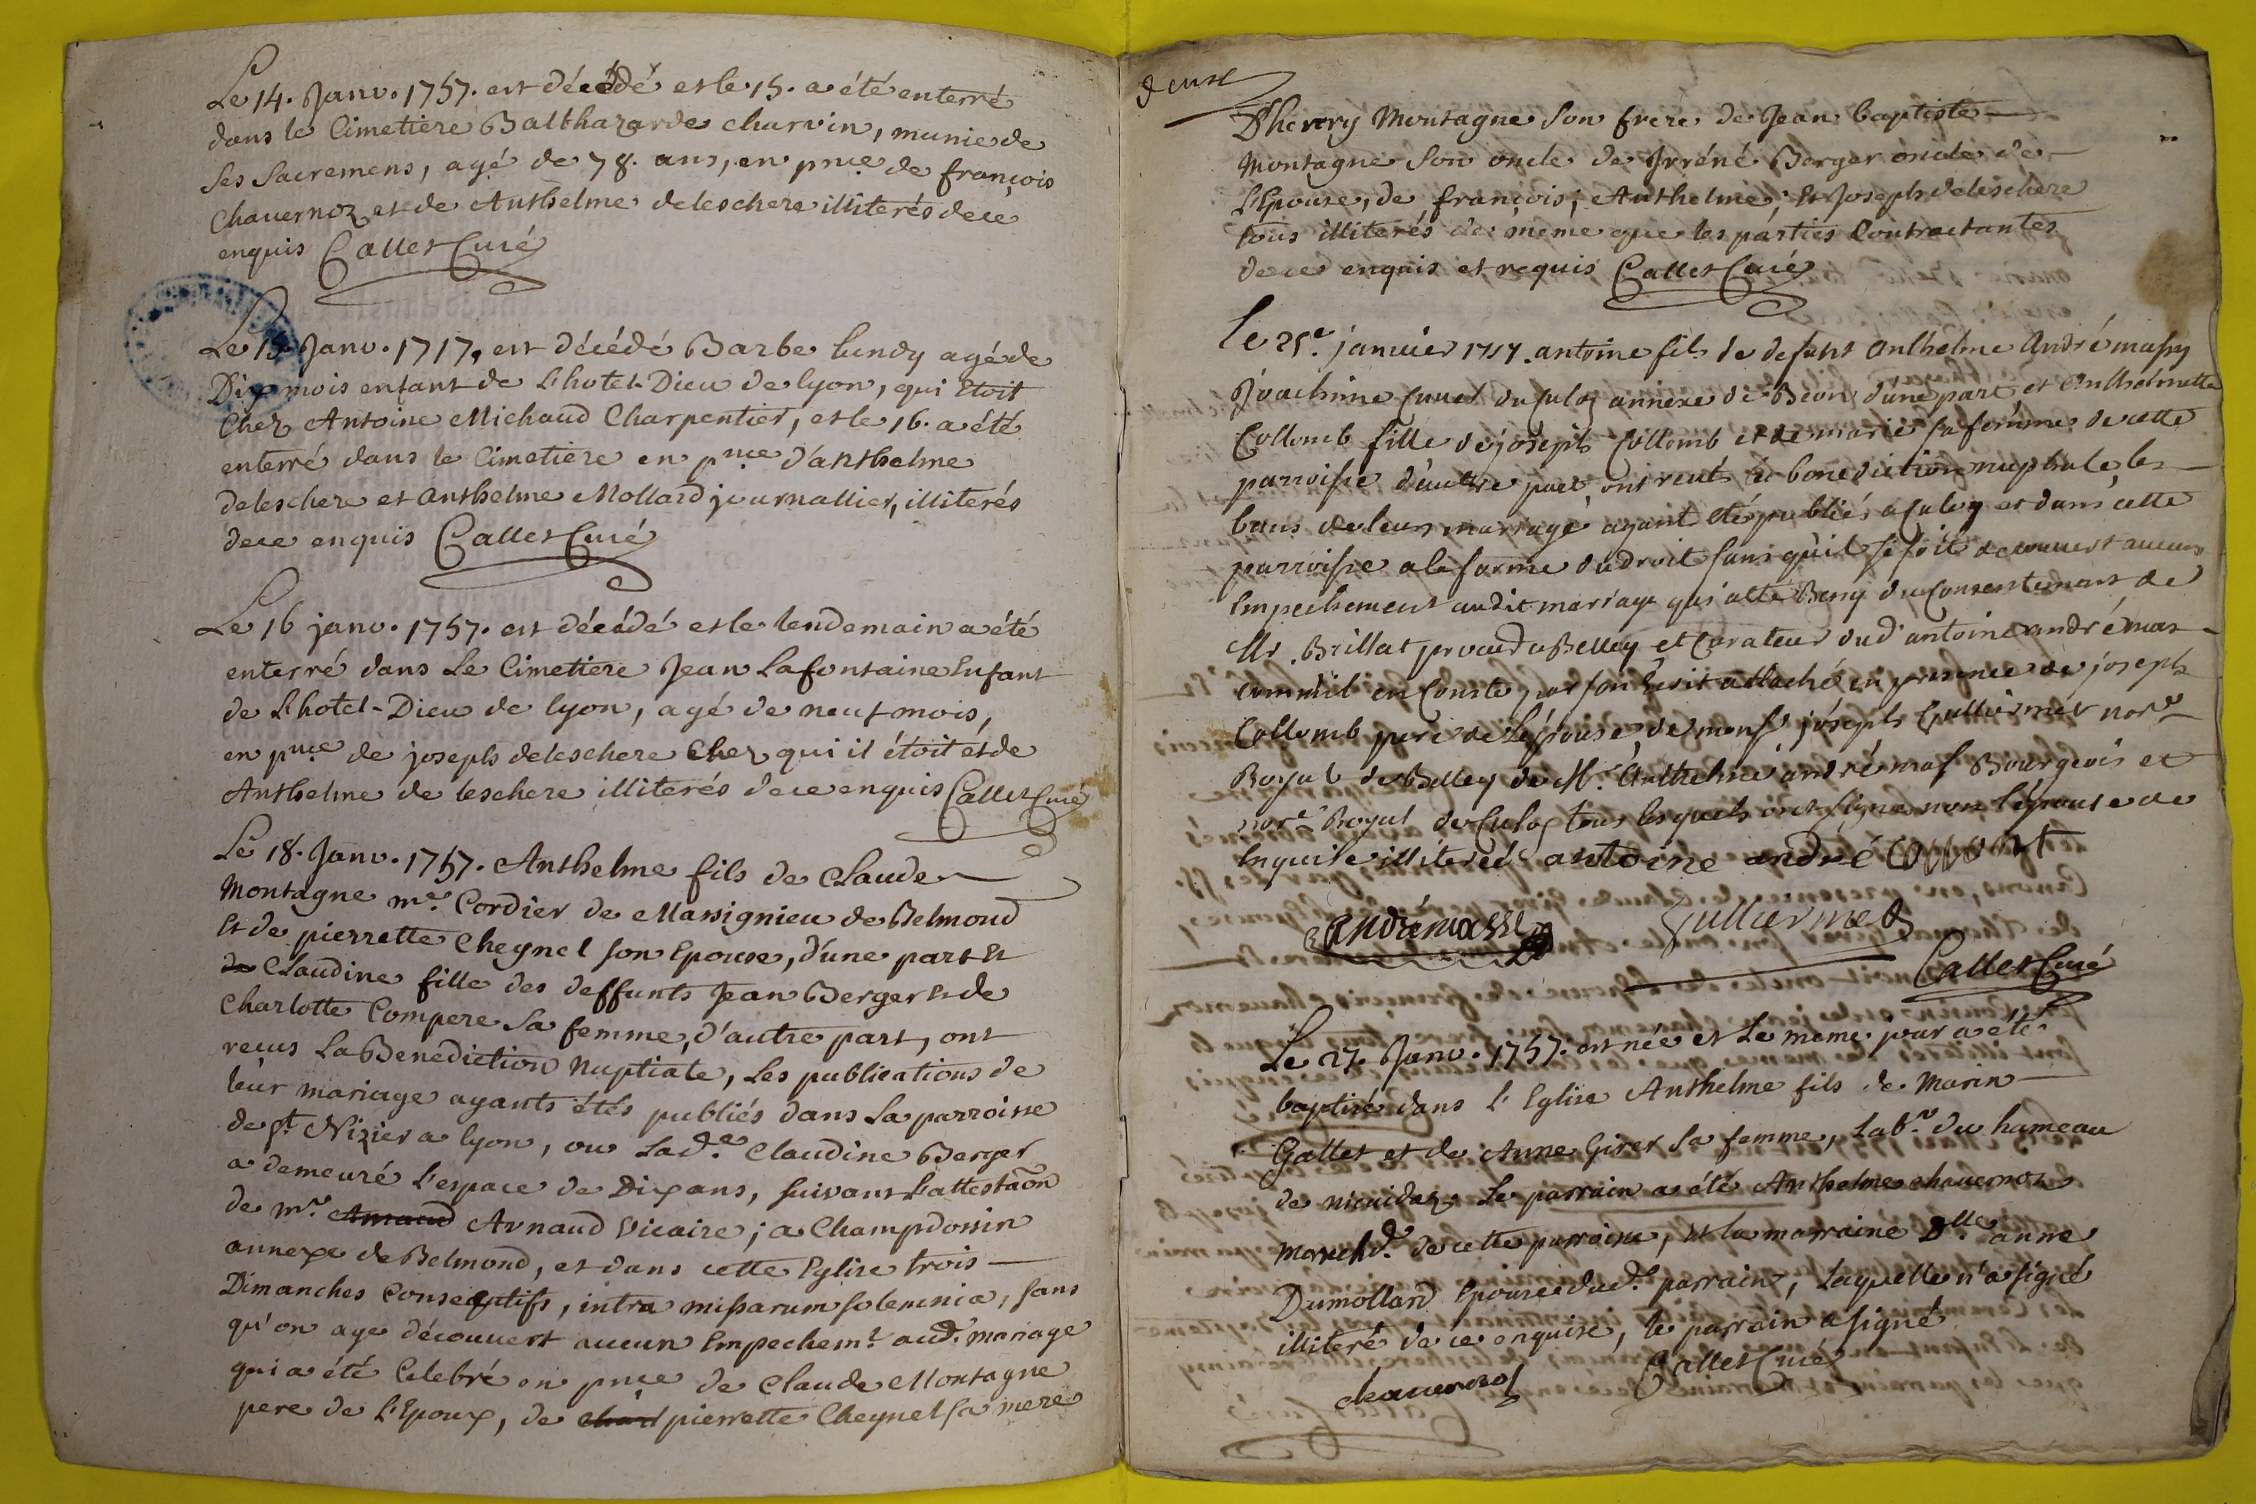 Le 14. Janv. 1757. est décédé et le 15. a été enterré
dans le Cimetiere Balthazarde charvin, munie de
ses sacremens, agé de 78. ans, en pnce de françois
Chavernoz et de Anthelme deleschere illiterés de ce
enquis Callet Curé
Le 15 Janv. 1717, est décédé Barbe lundy agé de
Dix mois enfant de L'hotel-Dieu de lyon, qui Etoit
Chez Antoine Michaud Charpentier, et le 16. a été
enterré dans le Cimetiere en pnce d'Anthelme
deleschere et Anthelme Mollard journallier, illiterés
de ce enquis Callet Curé
Le 16 janv. 1757. est décédé et le lendemain a été
enterré dans Le Cimetiere Jean Lafontaine Enfant
de L'hotel-Dieu de lyon, agé de neuf mois,
en pnce de joseph deleschere Chez qui il étoit et de
Anthelme de leschere illiterés de ce enquis Callet Curé
Le 18. Janv. 1757. Anthelme fils de Claude
Montagne me. Cordier de Massignieu de Belmond
Et de pierrette Cheynel son Epouse, d'une part Et
de Claudine fille des deffunts Jean Berger Et de
Charlotte Compere sa femme, d'autre part, ont
reçus La Benediction Nuptiale, Les publications de
leur mariage ayants étés publiés dans La parroisse
de st Nizier a lyon, ou Lade. Claudine Berger
a demeuré L'espace de Dix ans, suivant L'attestaõn
de mr. Arnaud Arnaud Vicaire; a Champdossin
annexe de Belmond, et dans cette Eglise trois
Dimanches Consecutifs, intra missarum solemnia, sans
qu'on aye découvert aucun Empechemt. aud. mariage
qui a été Celebré en pnce de Claude Montagne
pere de L'Epoux, de pierrette Cheynel sa mere
deuxe
Thierry Montagne son frere de Jean baptiste
Montagne son oncle de Irréné Berger oncle de
L'Epouse, de françois, Anthelme, Et Joseph deleschere
tous illiterés de même que les parties Contractantes
de ce enquis et requis Callet Curé
le 25e. janvier 1757. antoine fils de defunt anthelme André massy
Joachime Cunet du Culoz annexe de Béon d'une part et Anthelmette
Collomb fille de joseph Collomb et de marie sa femme de cette
parroisse d'autre part, ont reçus la benediction nuptiale, les
bans de leur mariage ayant été publiés a Culoz et dans cette
parroisse a la forme du droit sans qu'il se soit decouvert aucun
Empechement audit mariage qui a été Beny du Consentement de
Mr. Brillat a Belley et Curateur dud. antoine andré mas
commit en Conste par son Ecrit attaché en presence de joseph
Collomb pere de L'épouse, de monsr joseph Gulliermet nore.
Royal de Belley de Mr. Anthelme andrémas Bourgeois et
nore. Royal de Culoz tous lesquels ont signé non l'épouse de
Enquise illiteréé antoine andré Collomb
andrémasse Gulliermet
Callet Curé
Le 27. Janv. 1757. est née et Le meme jour a été
baptisé dans L'Eglise Anthelme fils de Marin
Gallet et de Anne Girer sa femme, Labr. du hameau
de nicuidaz. Le parrain a été Anthelme chavernoz
Marchd. de cette parroisse, Et la marraine Dlle anne
Dumollard Epouse dud. parrain, Laquelle n'a signé
illiteré de ce enquise, le parrain a signé
chavernoz Callet Curé